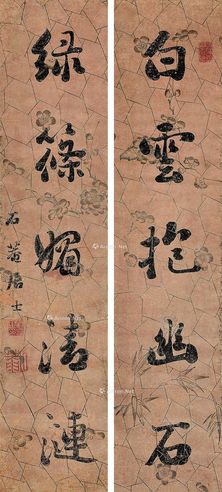 白雲抱幽石
綠篠媚清漣
石菴居士